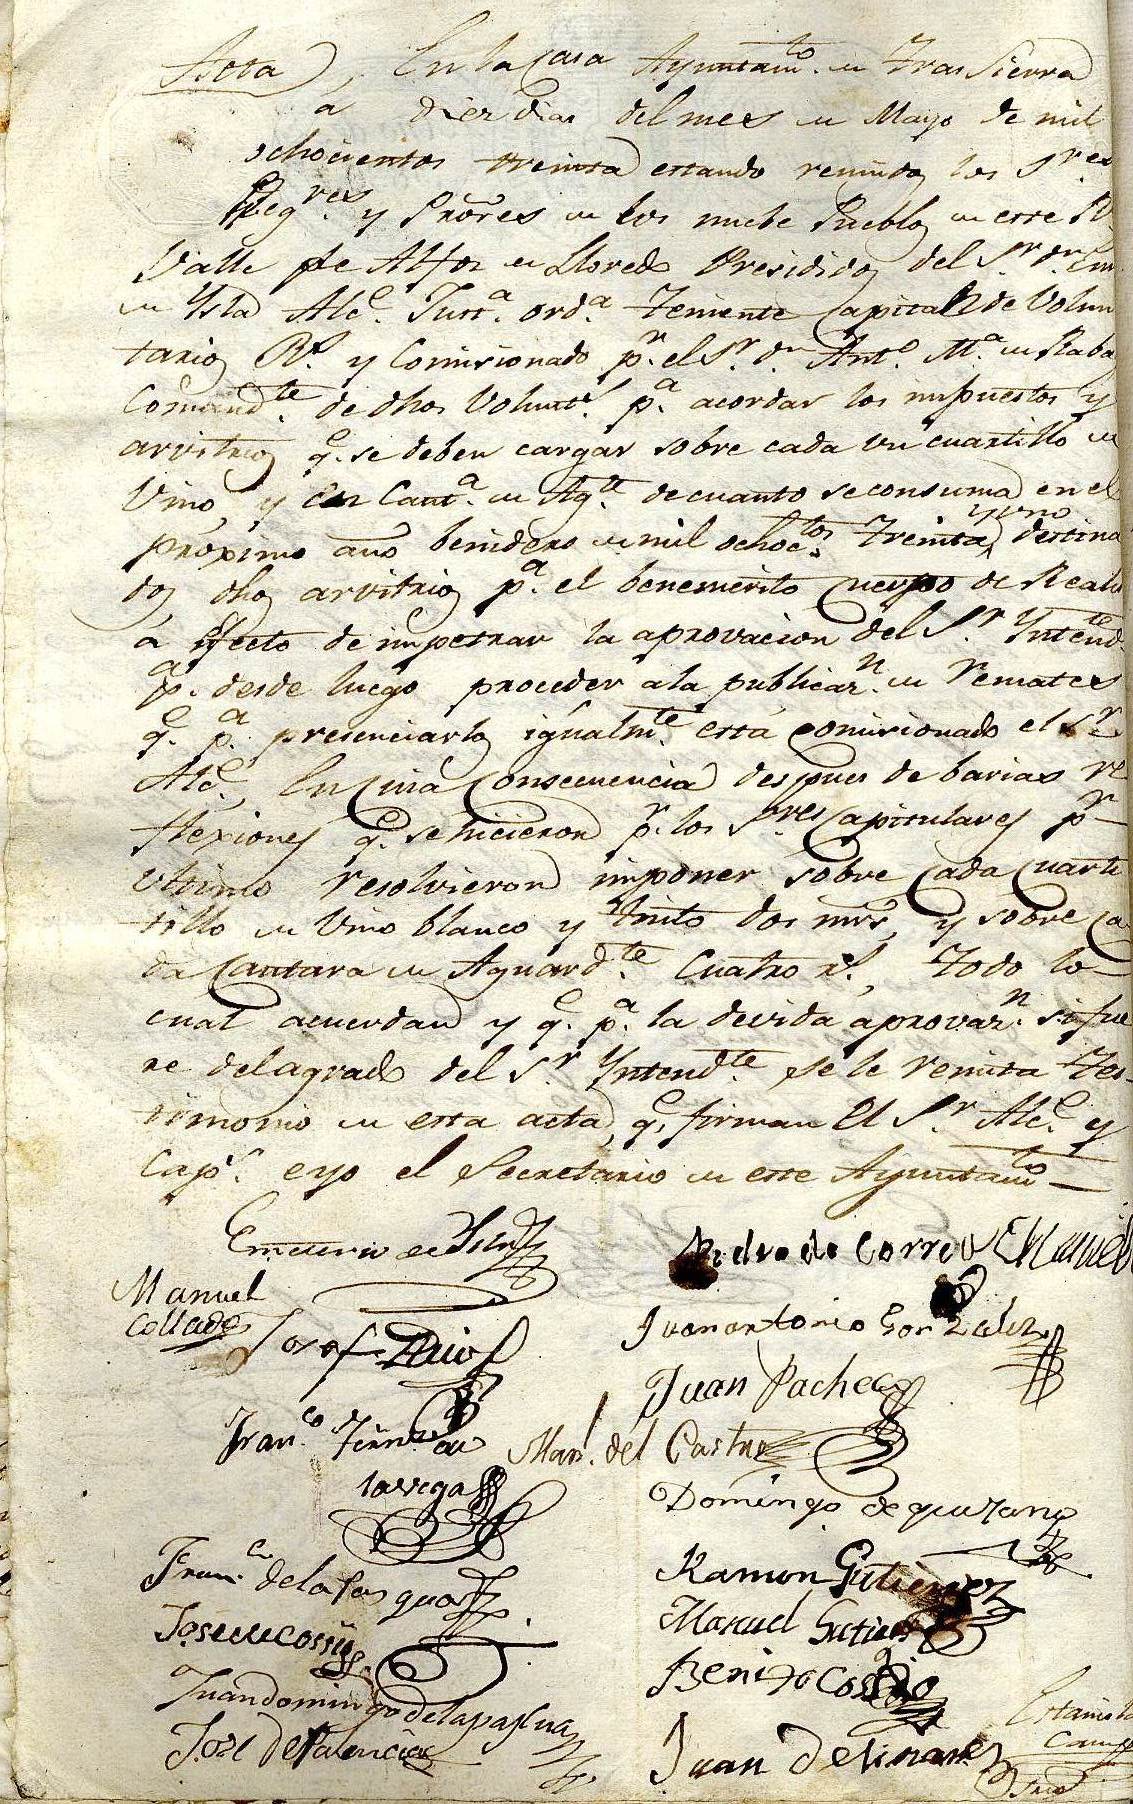 Acta), En la Casa Ayuntamto. de Tras Sierra
a diez dias del mes de Mayo de mil
ochocientos treinta estando reunidos los Sres.
Regres. y Prores de los nuebe Pueblos de este Rl.
Valle de Alfoz de Lloredo Presididos del Sr. Dn. Em
de Ysla Alce. Justa. orda. Teniente Capital de Volun
tarios Rs. y Comisionado pr. el Sr. Dn. Anto. Ma. de Raba
Comandte. de dhos Volunts. pa. acordar los impuestos y
arvitrios qe. se deben cargar sobre cada un cuartillo de
Vino, y en Canta. de Agte. de cuanto se consuma en el
yuno
proximo año benidero de mil ochoctos. treinta, destina
dos dhos arvitrios pa. el benemerito Cuerpo de Reali
a efecto de impetrar la aprovacion del Sr. Yntendte.
pa. desde luego proceder a la publicazn. de Remates
qe. pa. presenciarlos igualmte. está comisionado el Sr.
Alce. En cuia Consecuencia despues de barias re
flexiones qe. se hicieron pr. los Sres Capitulares pr.
ultimo resolvieron imponer sobre cada cuarti
tillo de Vino blanco y tinto dos mrs, y sobre ca
da Cantara de Aguardte. Cuatro rs., Todo lo
cual acuerdan y qe. pa. la devida aprovazn. si fue
re del agrado del Sr. Yntendte. se le remita Tes-
timonio de esta acta, qe. firman el Sr. Alce. y
Caps. e yo el Secretario de este Ayuntamto
Emeterio de Ysla
Pedro de Correo Manuel
Manuel
Collado
Josef Ruiz
Juan antonio Gonzalez
Juan Pacheco
Franco. Fernz. de
la vega
Man. del Castro
Domingo de quijano
Franco. de la Pasqua
Ramon Gutierrez
Jose de Cossio
Manuel Gutierrez
Juan domingo de la pasqua
Benito Cossio
Jose de Palencia
Juan de linares
Estanisla
Campo
Srio